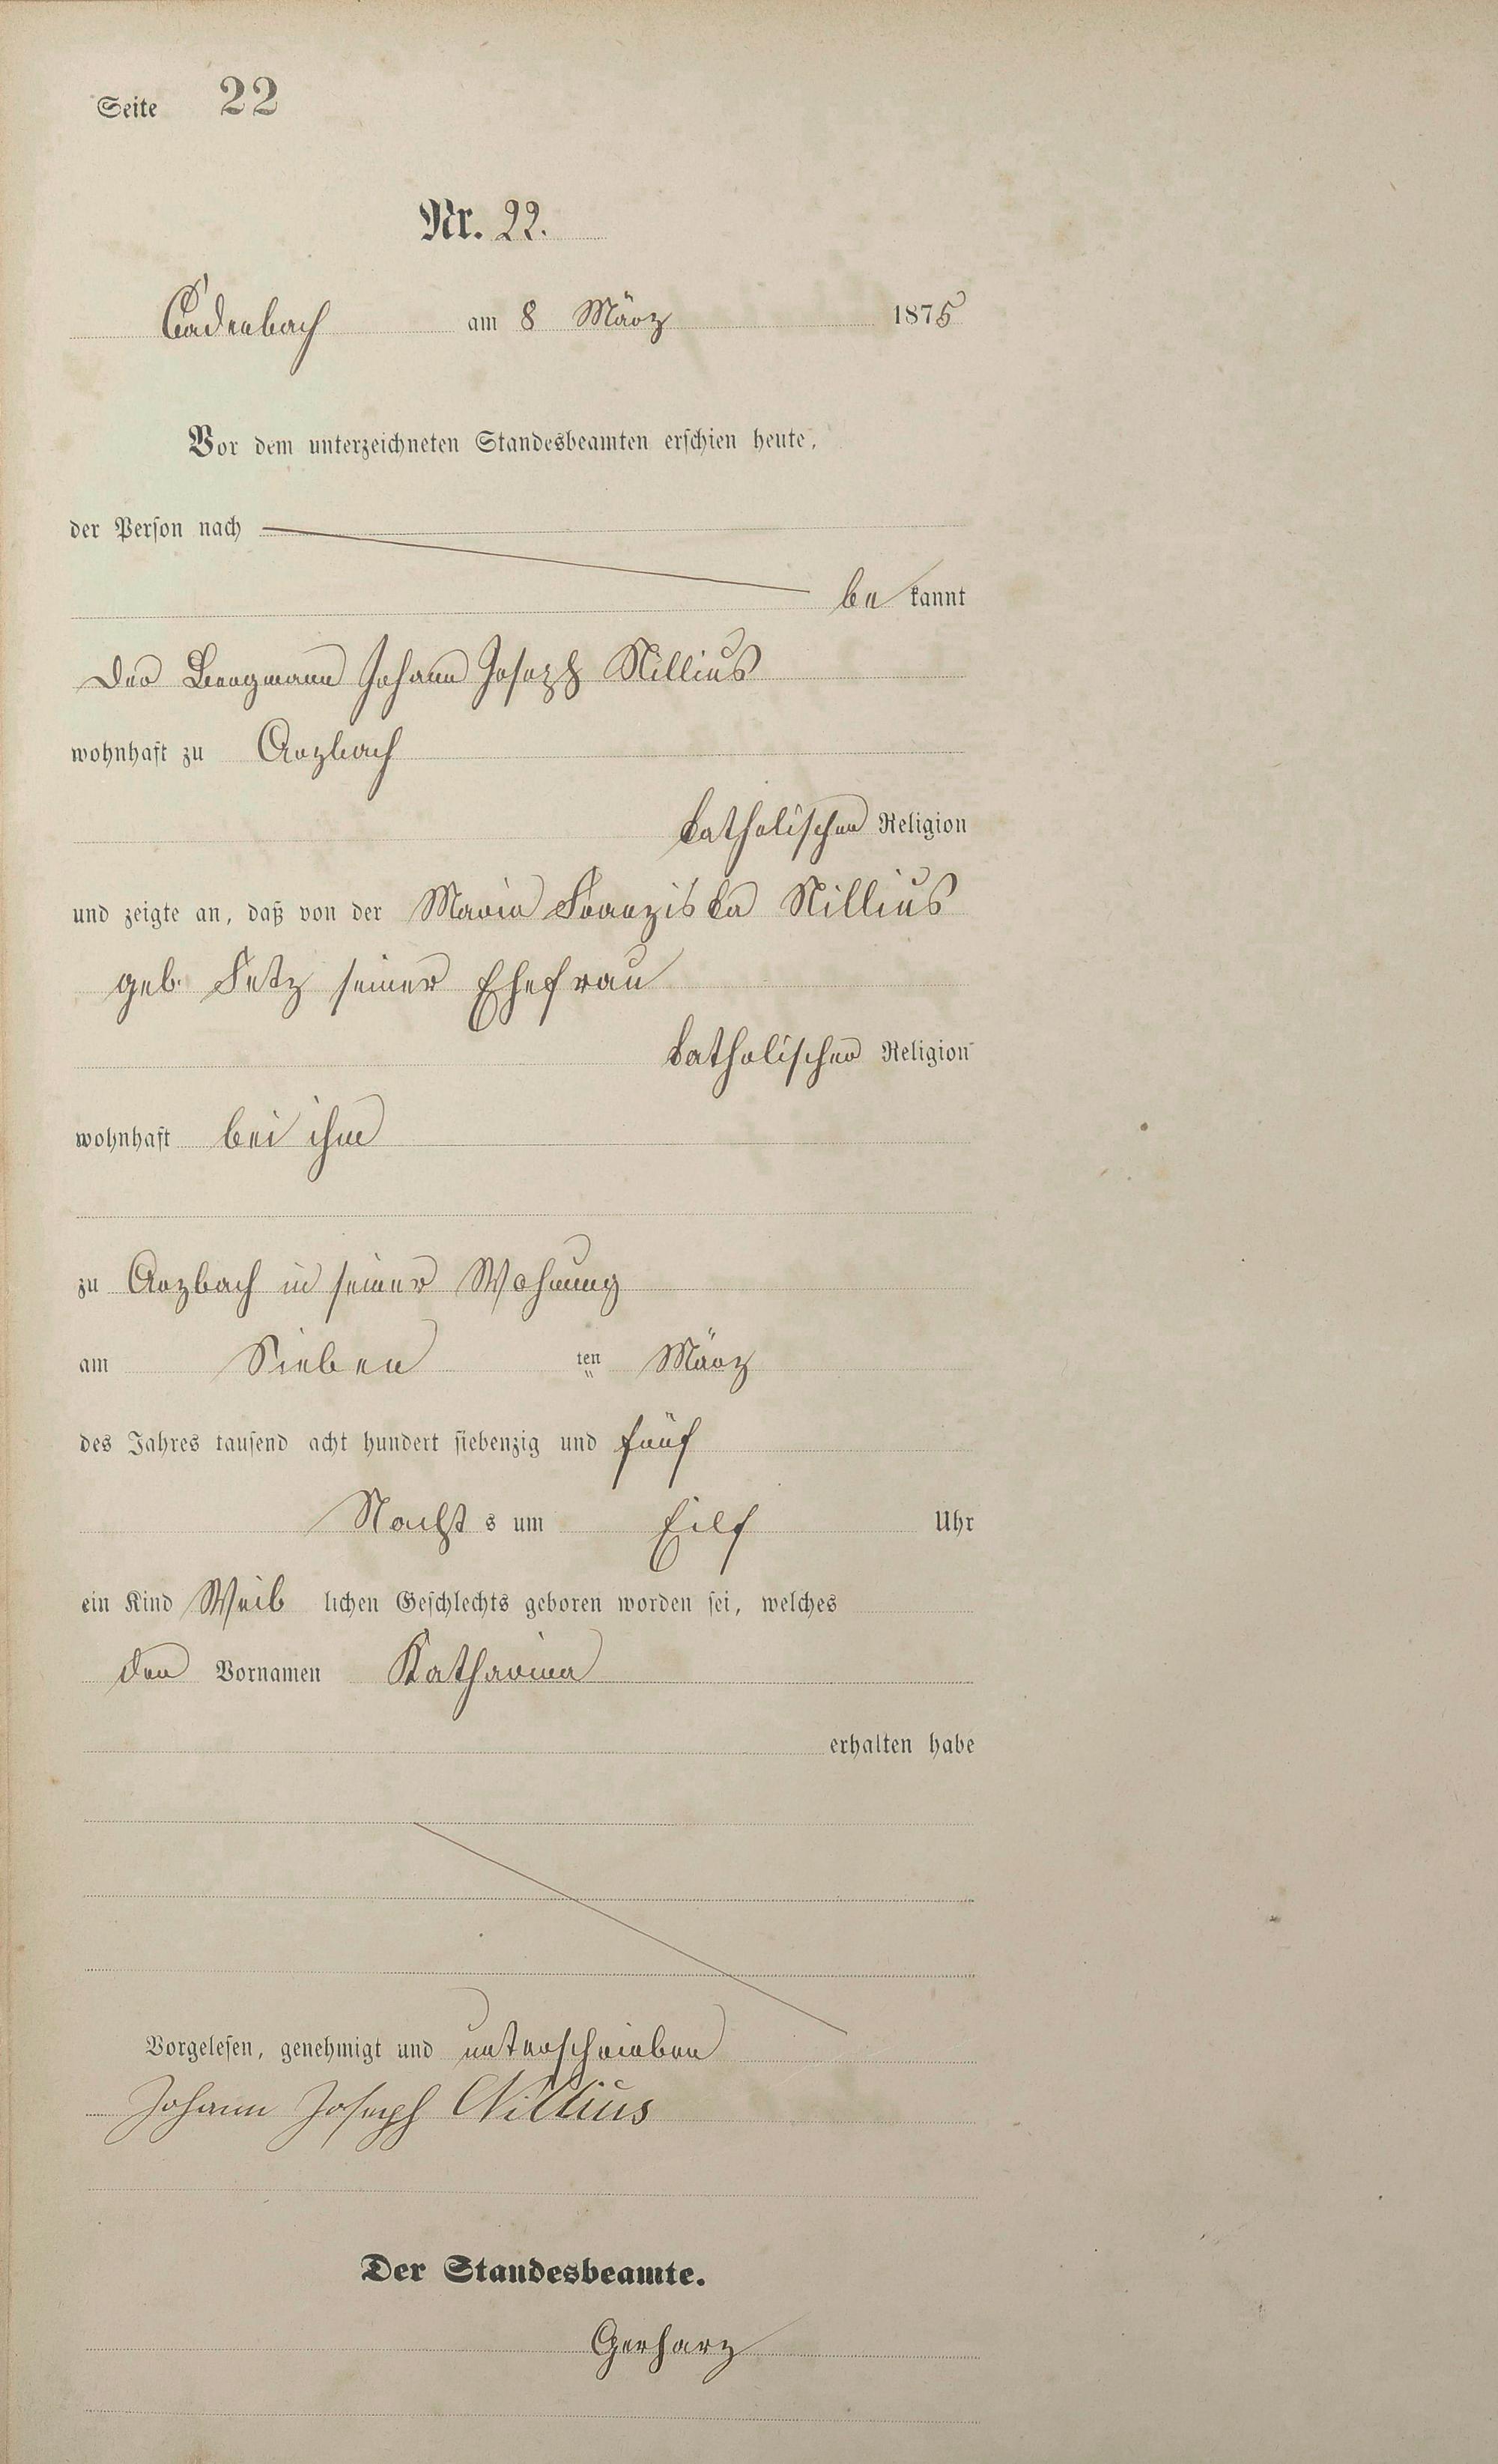 Seite 22
Nr. 22.
Cadenbach am 8 März 1875
Vor dem unterzeichneten Standesbeamten erschien heute,
der Person nach
be kannt
Der Bergmann Johann Joseph Nillius
wohnhaft zu Arzbach
katholischer Religion
und zeigte an, daß von der Maria Franziska Nillius
geb. Fetz seiner Ehefrau
katholischer Religion
wohnhaft bei ihm
zu Arzbach in seiner Wohnung
am Sieben ten März
des Jahres tausend acht hundert siebenzig und fünf
Nacht s um Eilf Uhr
ein Kind Weib lichen Geschlechts geboren worden sei, welches
den Vornamen Katharina
erhalten habe
Vorgelesen, genehmigt und unterschrieben
Johann Joseph Nillius
Der Standesbeamte.
Gerharz